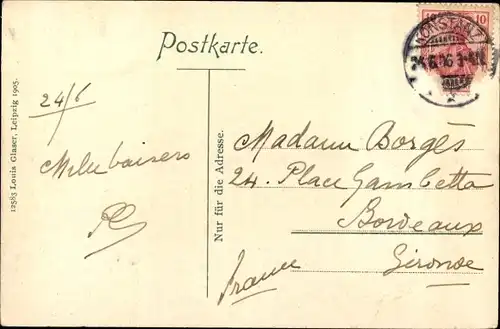 Postkarte.
KONSTANZ
10
24/6
Mille baisers
Madame Borgès
24. Place Gambetta
Bordeaux
Gironde
France
Nur für die Adresse.
12583 Louis Glaser, Leipzig 1905.